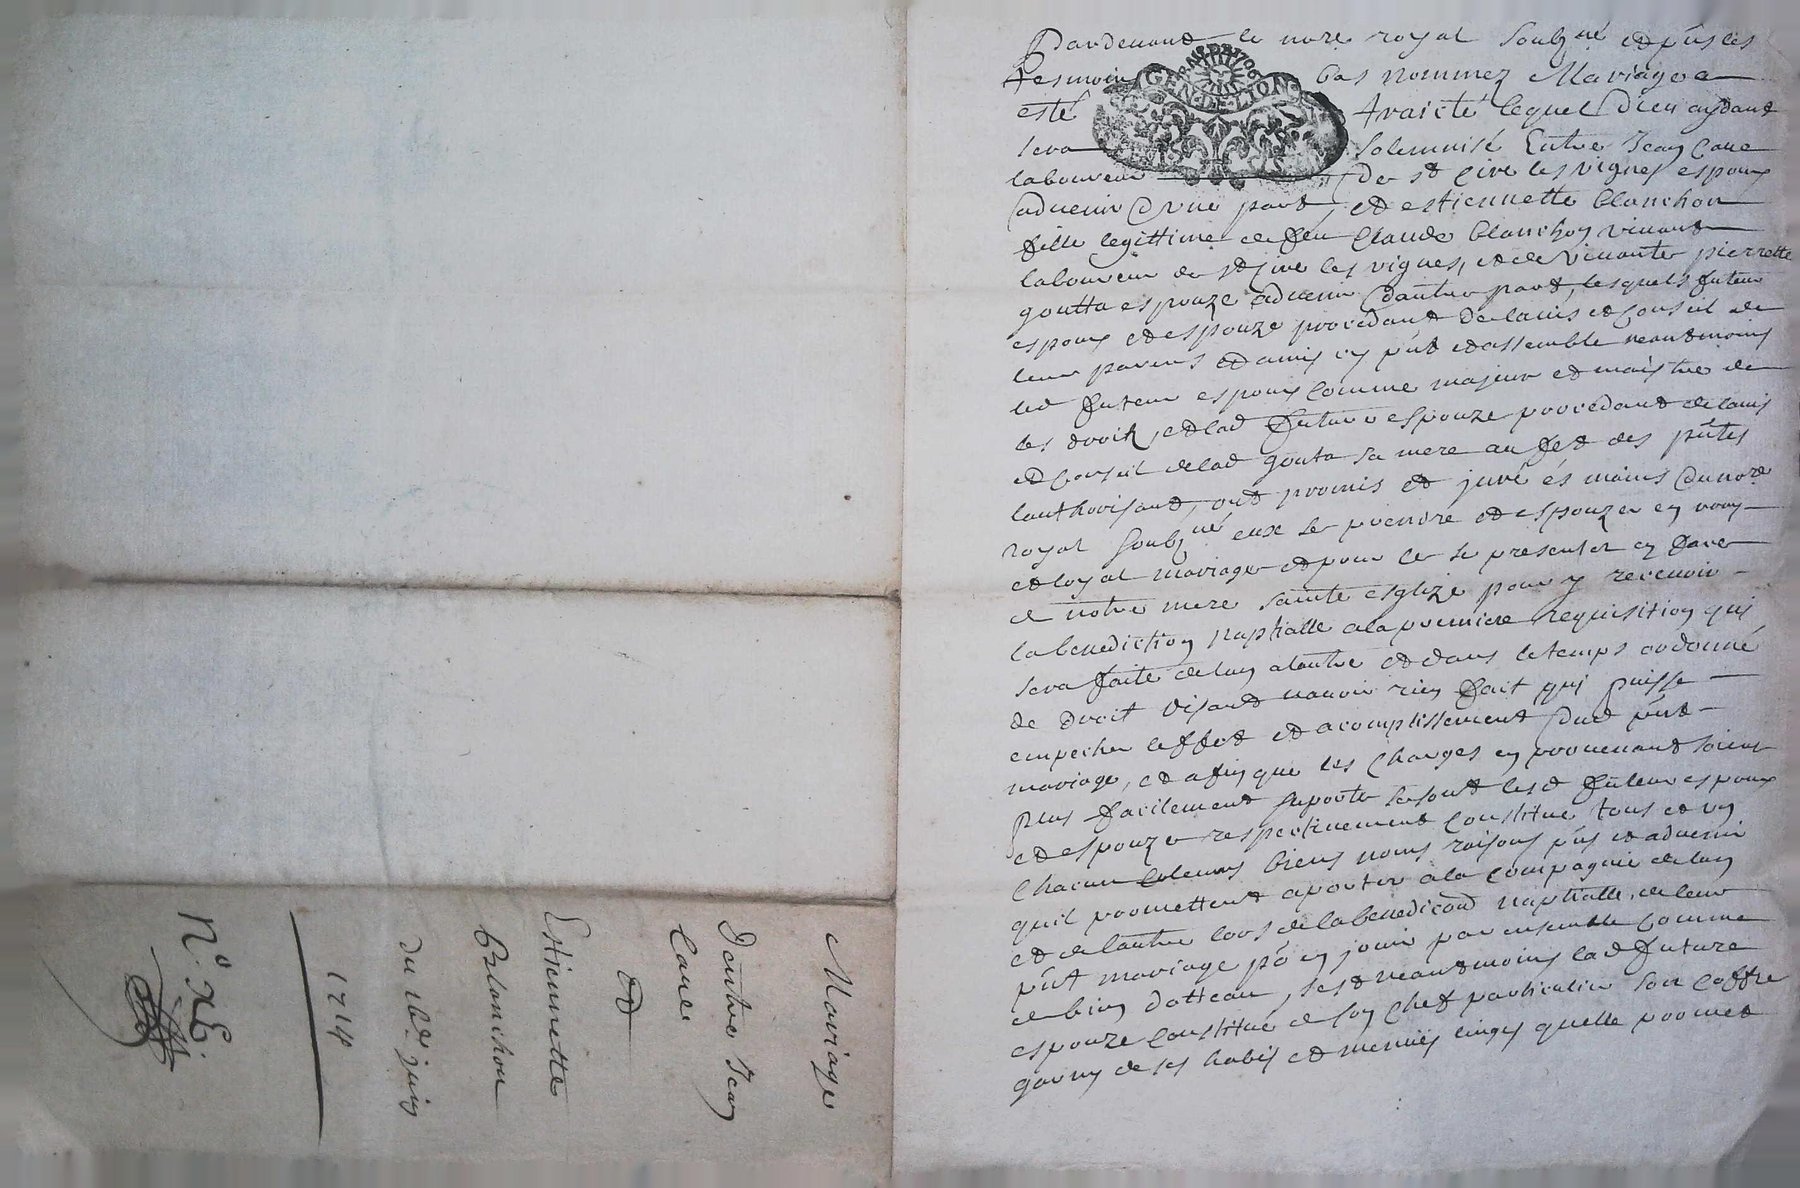 Mariage
Dentre Jean
Cave
Et
Estiennette
Blanchon
du juin
1714
N.º
Pardevant le no.re royal soubz.né et p̃ns les
tesmoins bas nommez Mariage a
esté traicté lequel Dieu aydant
sera solemnisé Entre Jean Cave
laboureur De St Cire les vignes espoux
advenir D'une part, et estiennette blanchon
fille legittime de feu Claude blanchon vivant
laboureur de St Sire les vignes, et de vivante pierrette
goutta espouze advenir d'autre part, lesquels futeur
espoux et espouze procedant de lavis et Conseil de
leur parens et amis ey p̃nt et assemblé neantmoins
led futeur espoux comme majeur et maistre de
ses droits, et lad future espouze procedant de lavis
et Conseil de lad gouta sa mere au fet des p̃ntes
lauthorisant, ont promis et juré és mains du no.re
royal soubz.né eux se prendre et espouzer en vray
et loyal mariage et pour ce se presenter en face
de notre mere sainte esglize pour y recevoir
la benediction nuptialle a la premiere requisition qui
sera faite de lun a lautre et dans le temps ordonné
de droit disant navoir rien fait qui puisse
empecher leffet et acomplissement dud p̃nt
mariage, et afin que les charges en provenant soient
plus facilement suporté se sont lesd futeur espoux
et espouze respectivement constitué tous et un
chacun leurs biens noms raisons p̃ns et advenir
quil promettent aporter a la compagnie de lun
et de lautre lors de la benedicõn nuptialle, de leur
p̃nt mariage po.r en jouir par ensemble comme
de bien dotteau, sest neantmoins lad future
espouze constitué de son chef particulier son coffre
garny de ses habis et menus linges quelle promet